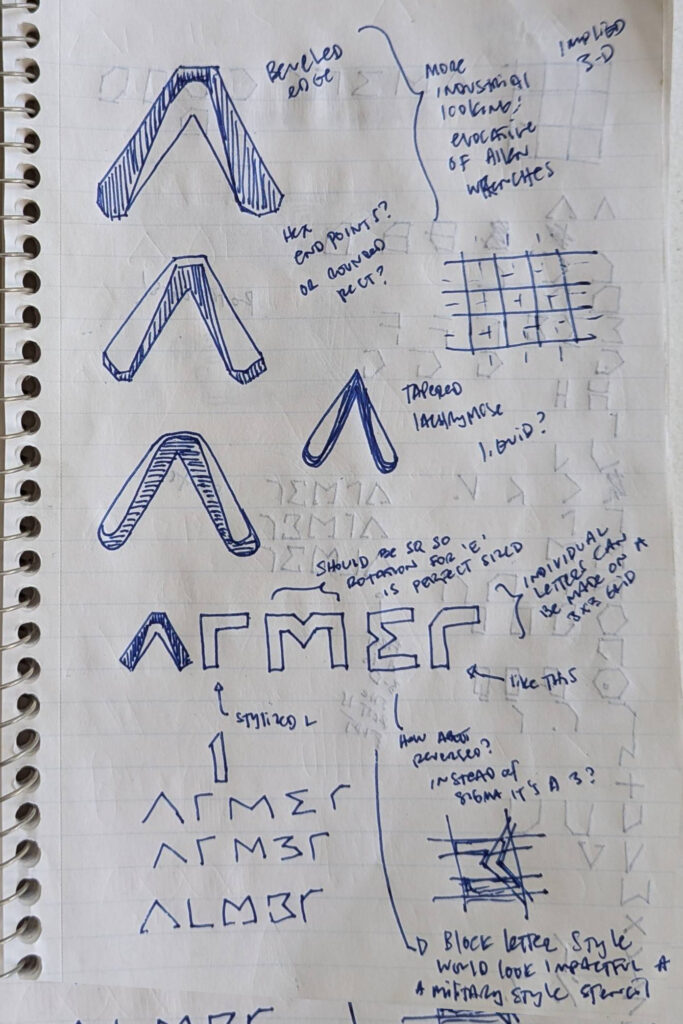 BEVELED
EDGE
MORE
INDUSTRIAL
LOOKING;
EVOCATIVE
OF ALLEN
WRENCHES
IMPLIED
3-D
HEX
ENDPOINTS?
OR ROUNDED
RECT?
TAPERED
LACHRYMOSE
LIQUID?
SHOULD BE SQ SO
ROTATION FOR 'E'
IS PERFECT SIZED
INDIVIDUAL
LETTERS CAN
BE MADE ON A
3X3 GRID
ΛΓMΣΓ
LIKE THIS
STYLIZED L
HOW ABOUT
REVERSED?
INSTEAD OF
SIGMA IT'S A 3?
ΛΓMΣΓ
ΛΓM3Γ
ΛLMBΓ
BLOCK LETTER STYLE
WOULD LOOK IMPACTFUL A
A MILITARY STYLE STENCIL